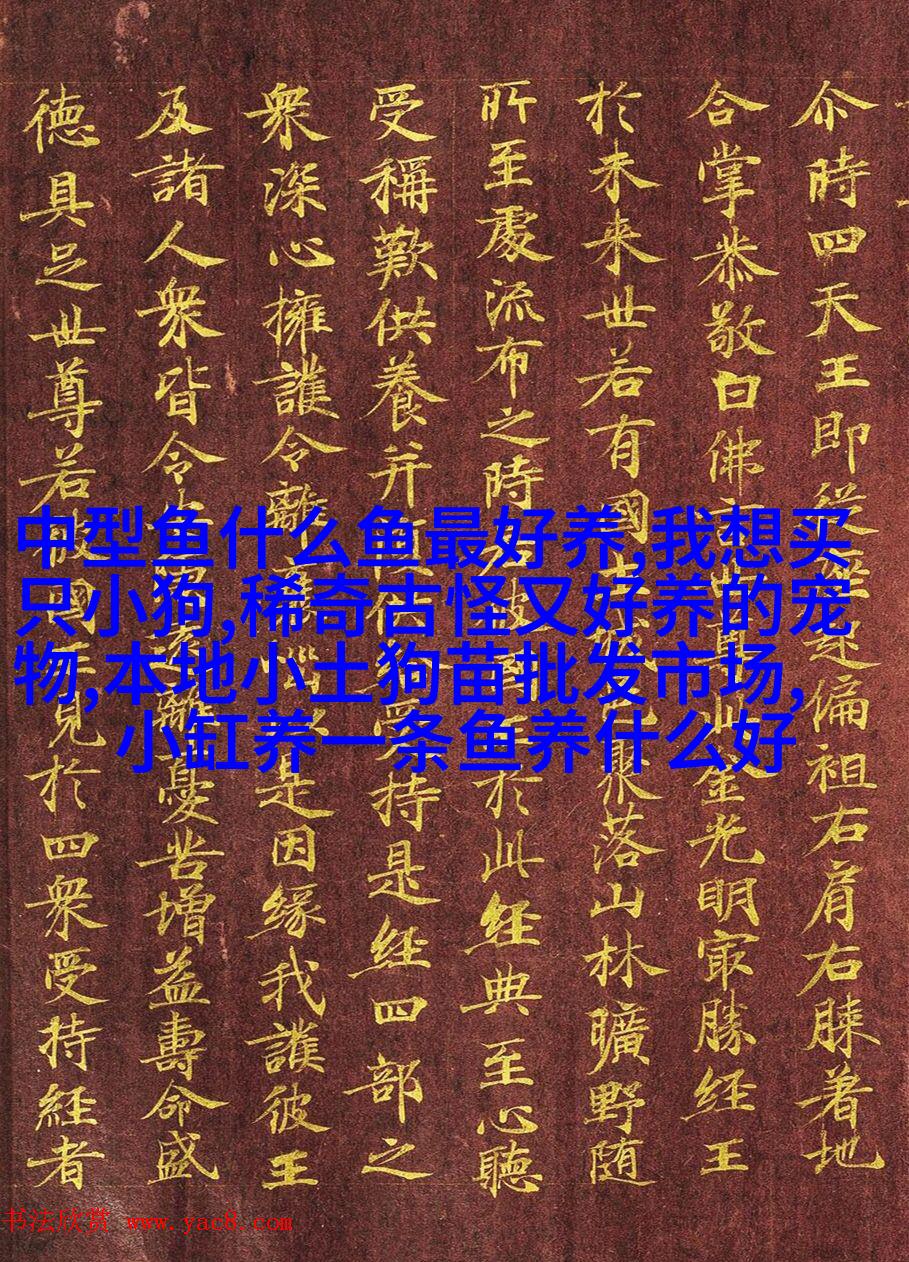 尒時四天王即從座起偏袒右肩右膝著地
合掌恭敬白佛言世尊此金光明寂勝経王
於未来世若有國土城邑聚落山林曠野随
所至處流布之時若彼國王於此経典至心聽
受稱歎供養并復供給受持是経四部之
衆深心擁護令離衰惱以是因緣我護彼王
及諸人衆皆令安隱遠離憂苦增益壽命威
徳具足世尊若彼國王見於四衆受持経者
中型鱼什么鱼最好养,我想买
只小狗,稀奇古怪又好养的宠
物,本地小土狗苗批发市场,
小缸养一条鱼养什么好
书法欣赏 www.yac8.com